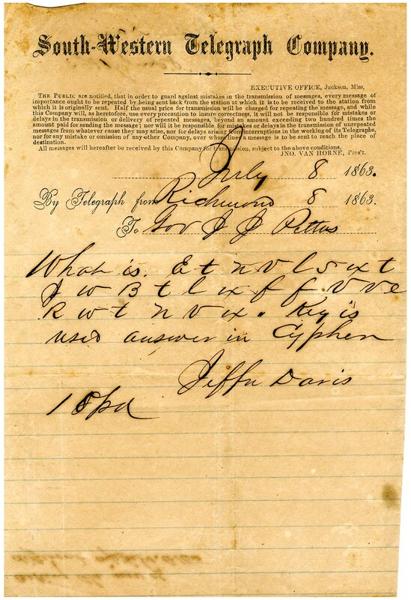 South-Western Telegraph Company.
EXECUTIVE OFFICE, Jackson, Miss,
THE PUBLIC are notified, that in order to guard against mistakes in the transmission of messages, every message of
importance ought to be repeated by being sent back from the station at which it is to be received to the station from
which it is originally sent. Half the usual price for transmission will be charged for repeating the message, and while
this Company will, as heretofore, use every precaution to insure correctness, it will not be responsible for mistakes or
delays in the transmission or delivery of repeated messages, beyond an amount exceeding two hundred times the
amount paid for sending the message; nor will it be responsible for mistakes or delays in the transmission of unrepeated
messages from whatever cause they may arise, nor for delays arising from interruptions in the working of its Telegraphs,
nor for any mistake or omission of any other Company, over whose lines a message is to be sent to reach the place of
destination.
All messages will hereafter be received by this Company for transmission, subject to the above conditions.
JNO. VAN HORNE, Pres't.
July 8 1863.
By Telegraph from Richmond 8 1863.
To Gov J J Pettus
What is. E t n v l
w B t l x f f v v e
w t n v x. Key is
used answer in Cypher
Jeffn Davis
18pd